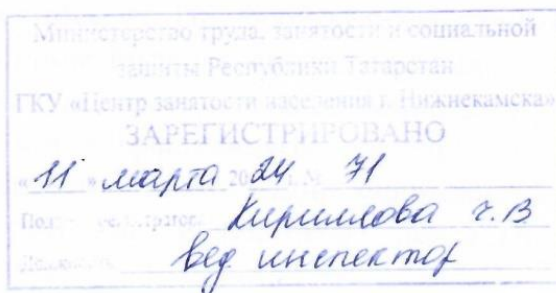 Министерство труда, занятости и социальной
защиты Республики Татарстан
ГКУ «Центр занятости населения г. Нижнекамска»
ЗАРЕГИСТРИРОВАНО
«11» марта 2024 г. № 71
Кириллова
вед инспектор